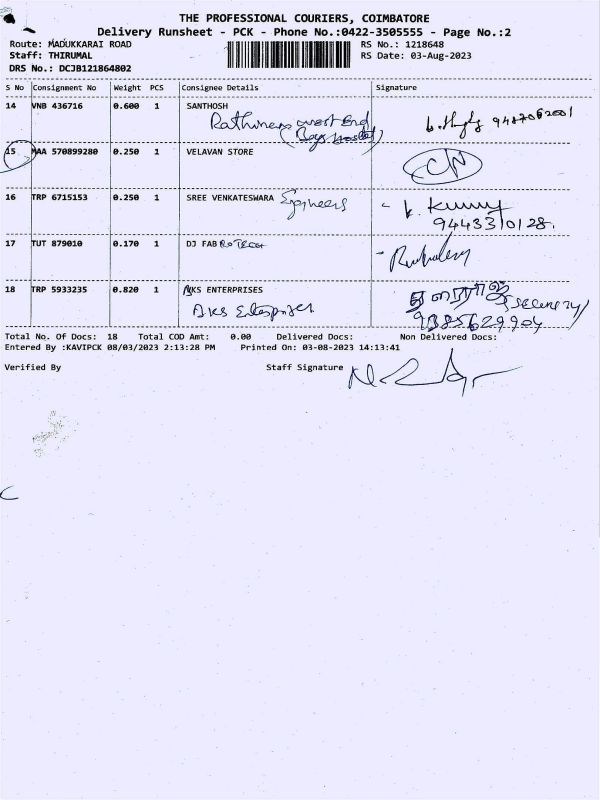 THE PROFESSIONAL COURIERS, COIMBATORE
Delivery Runsheet - PCK - Phone No.:0422-3505555 - Page No.:2
Route: MADUKKARAI ROAD RS No.: 1218648
Staff: THIRUMAL RS Date: 03-Aug-2023
DRS No.: DCJB121864802
S No Consignment No Weight PCS Consignee Details Signature
14 VNB 436716 0.600 1 SANTHOSH
Rathinam west End
(Boys hostel)
15 MAA 570899280 0.250 1 VELAVAN STORE
16 TRP 6715153 0.250 1 SREE VENKATESWARA Engineers
k. Kumar
9443310128.
17 TUT 879010 0.170 1 DJ FABROTECH
18 TRP 5933235 0.820 1 AKS ENTERPRISES
AKS Enterprises
(Security)
9385629904
Total No. Of Docs: 18 Total COD Amt: 0.00 Delivered Docs: Non Delivered Docs:
Entered By :KAVIPCK 08/03/2023 2:13:28 PM Printed On: 03-08-2023 14:13:41
Verified By Staff Signature